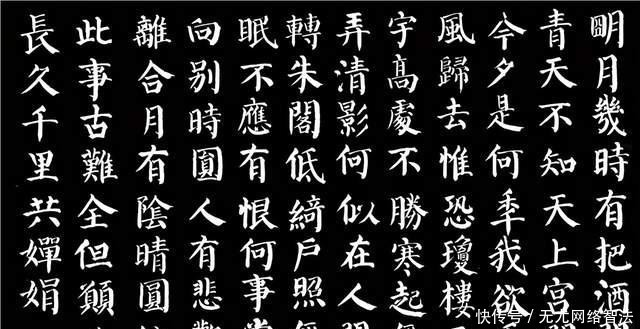 明月幾時有把酒
青天不知天上宮
今夕是何秊我欲
風歸去惟恐瓊樓
宇髙處不勝寒起
弄清影何似在人
轉朱閣低綺戶照
眠不應有恨何事
向别時圓人有悲
離合月有陰晴圓
此事古難全但願
長久千里共嬋娟
快传号／无尤网络智法